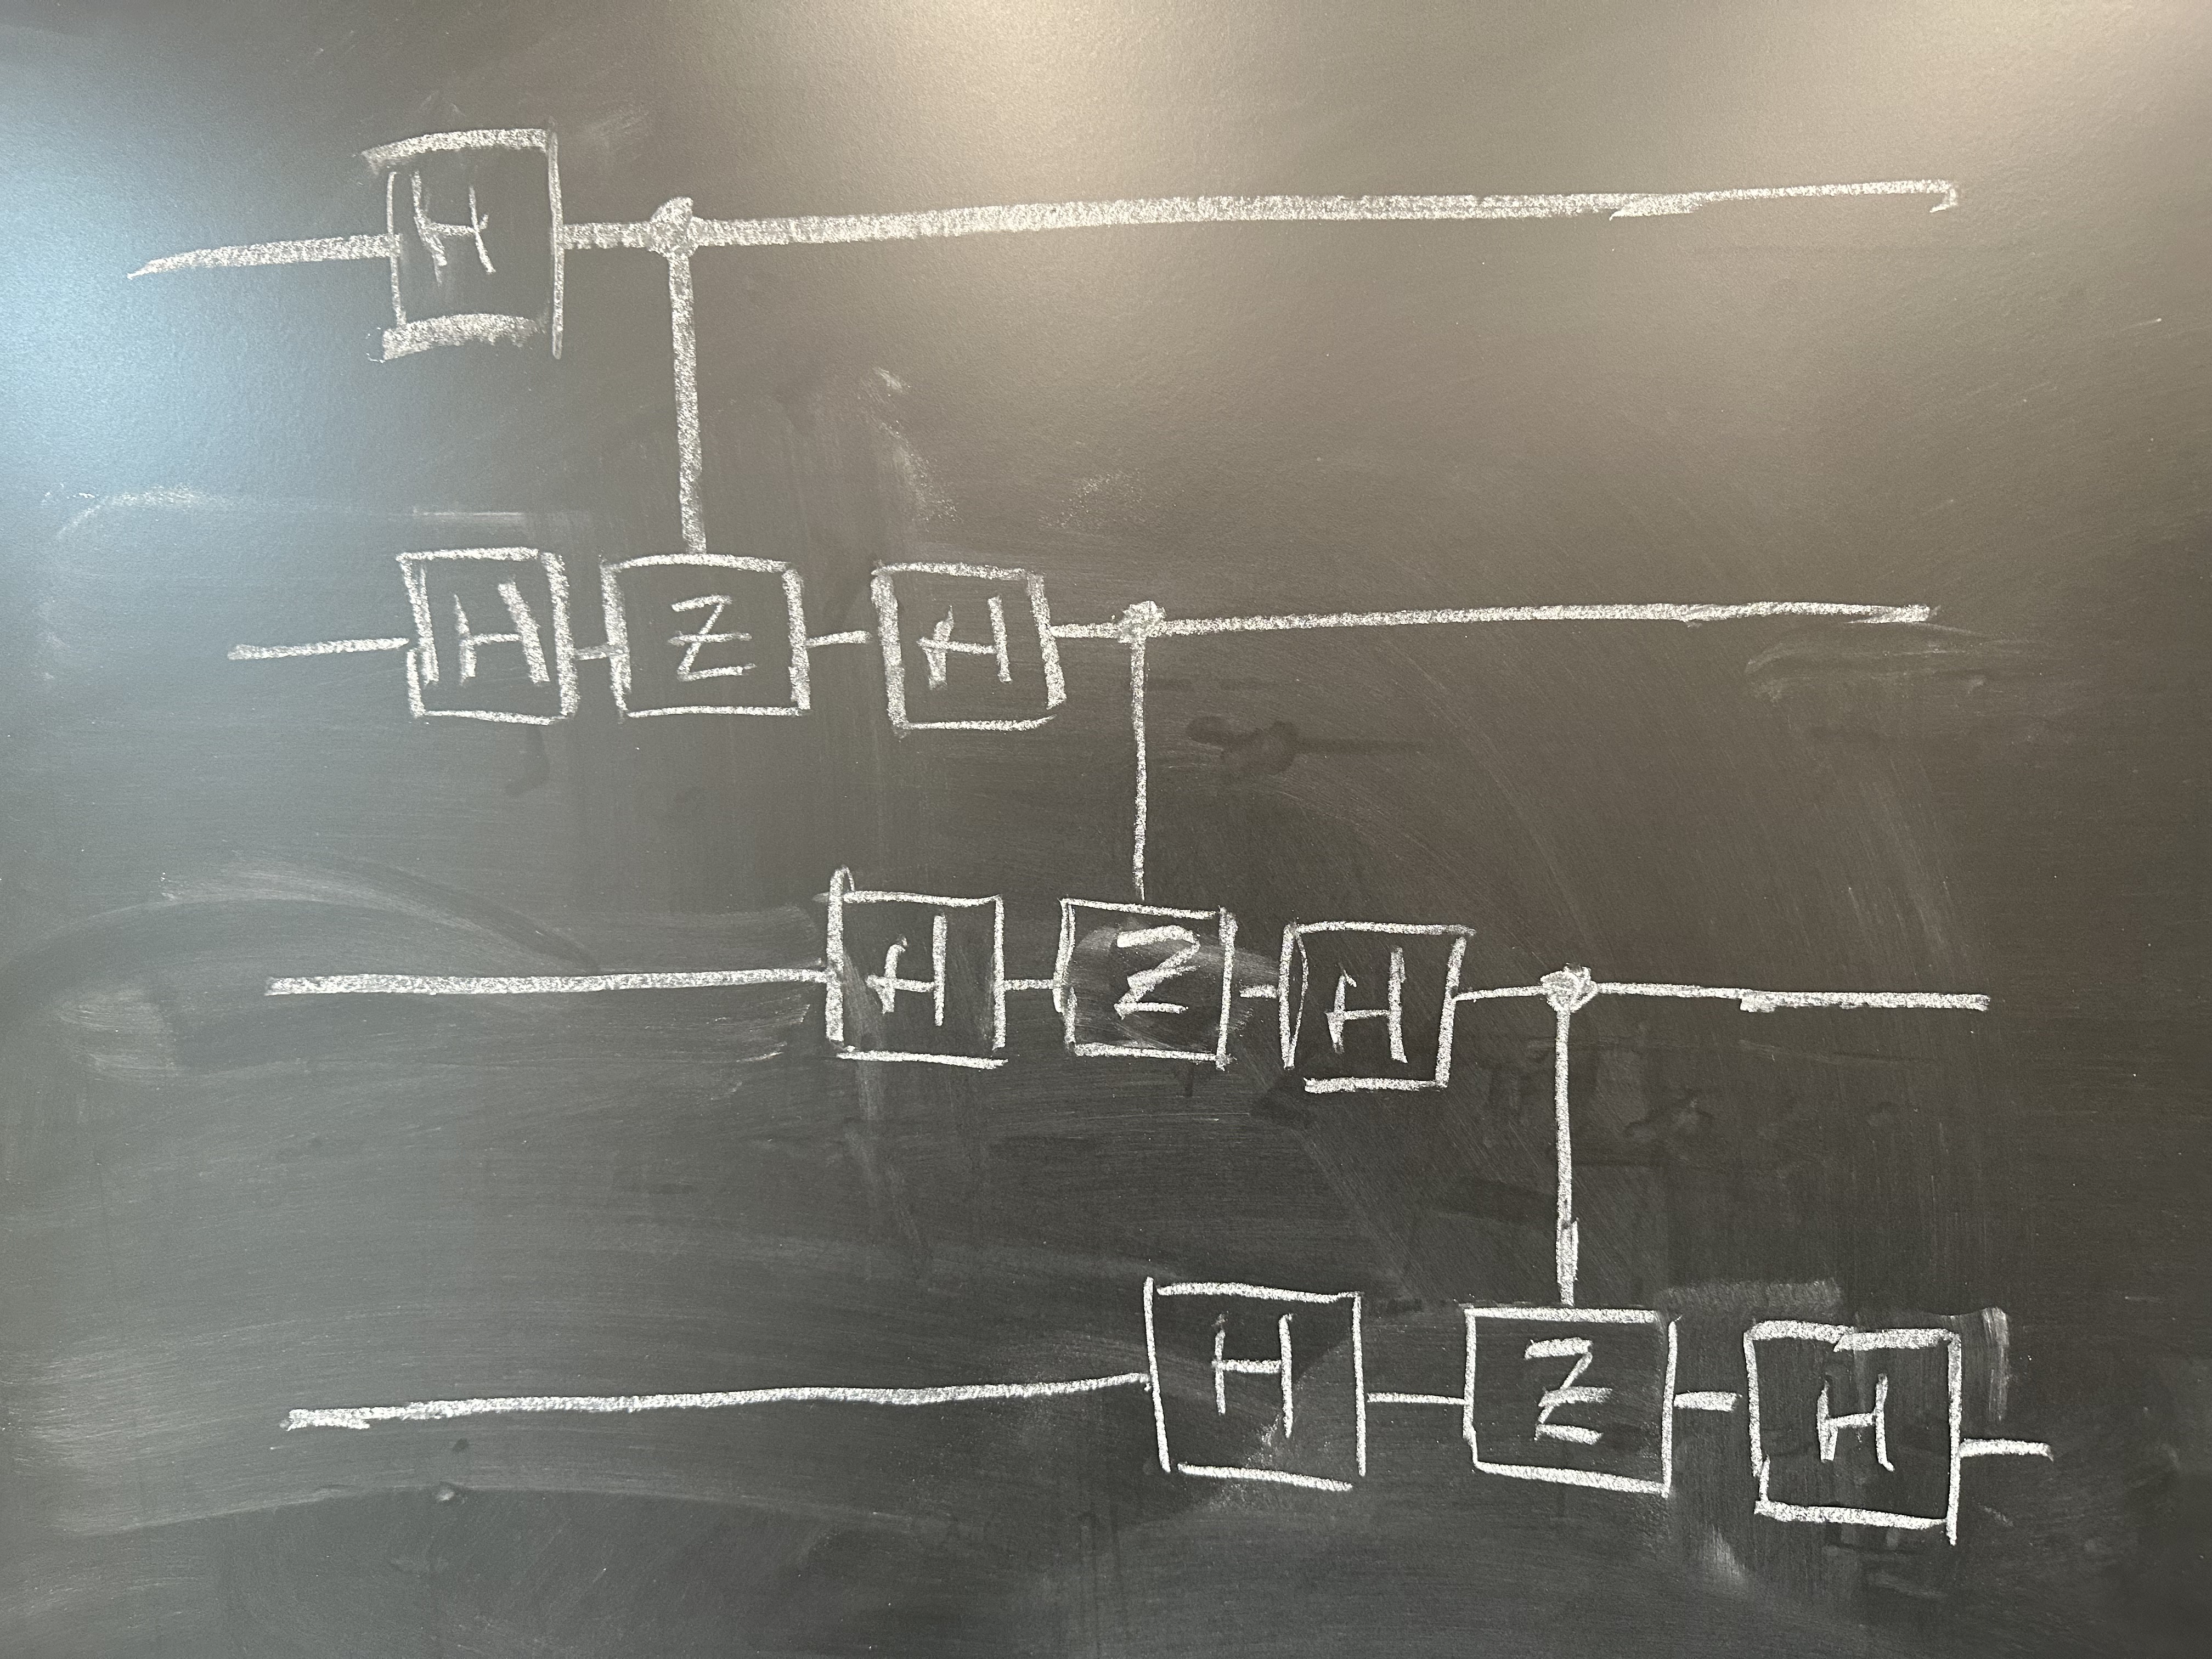 H
H Z H
H Z H
H Z H